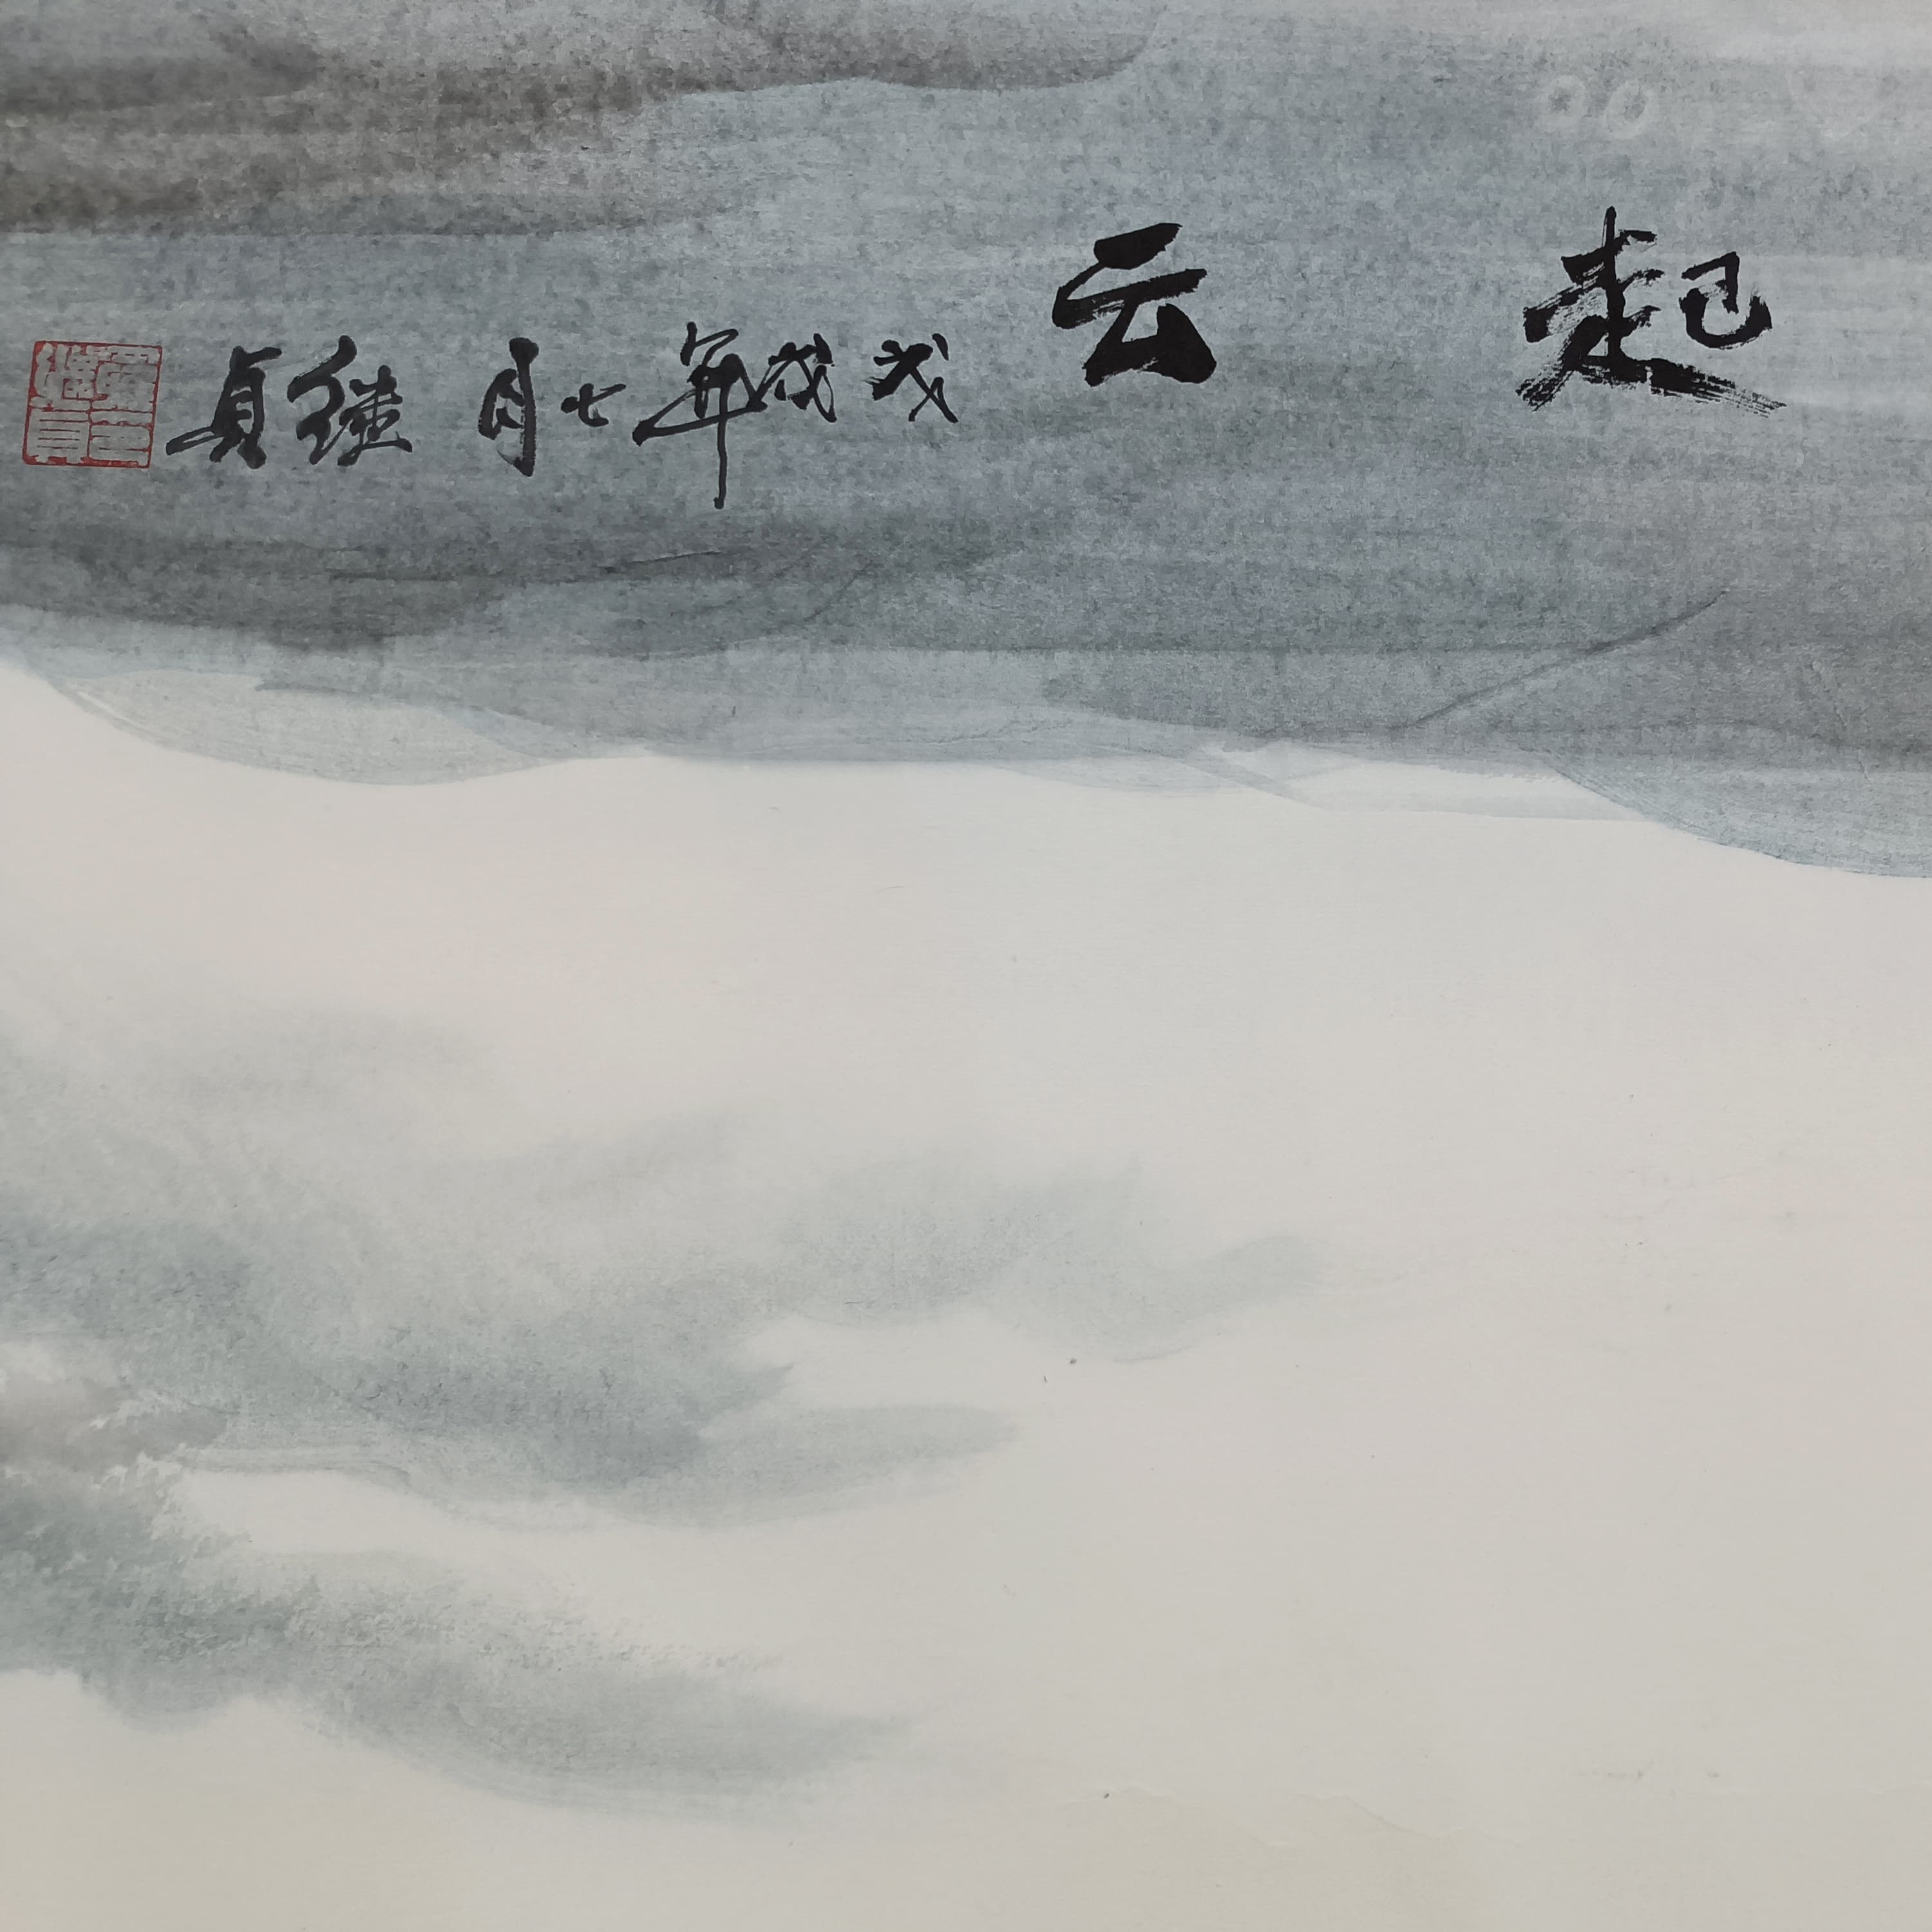 起云
戊戌年七月 继貞